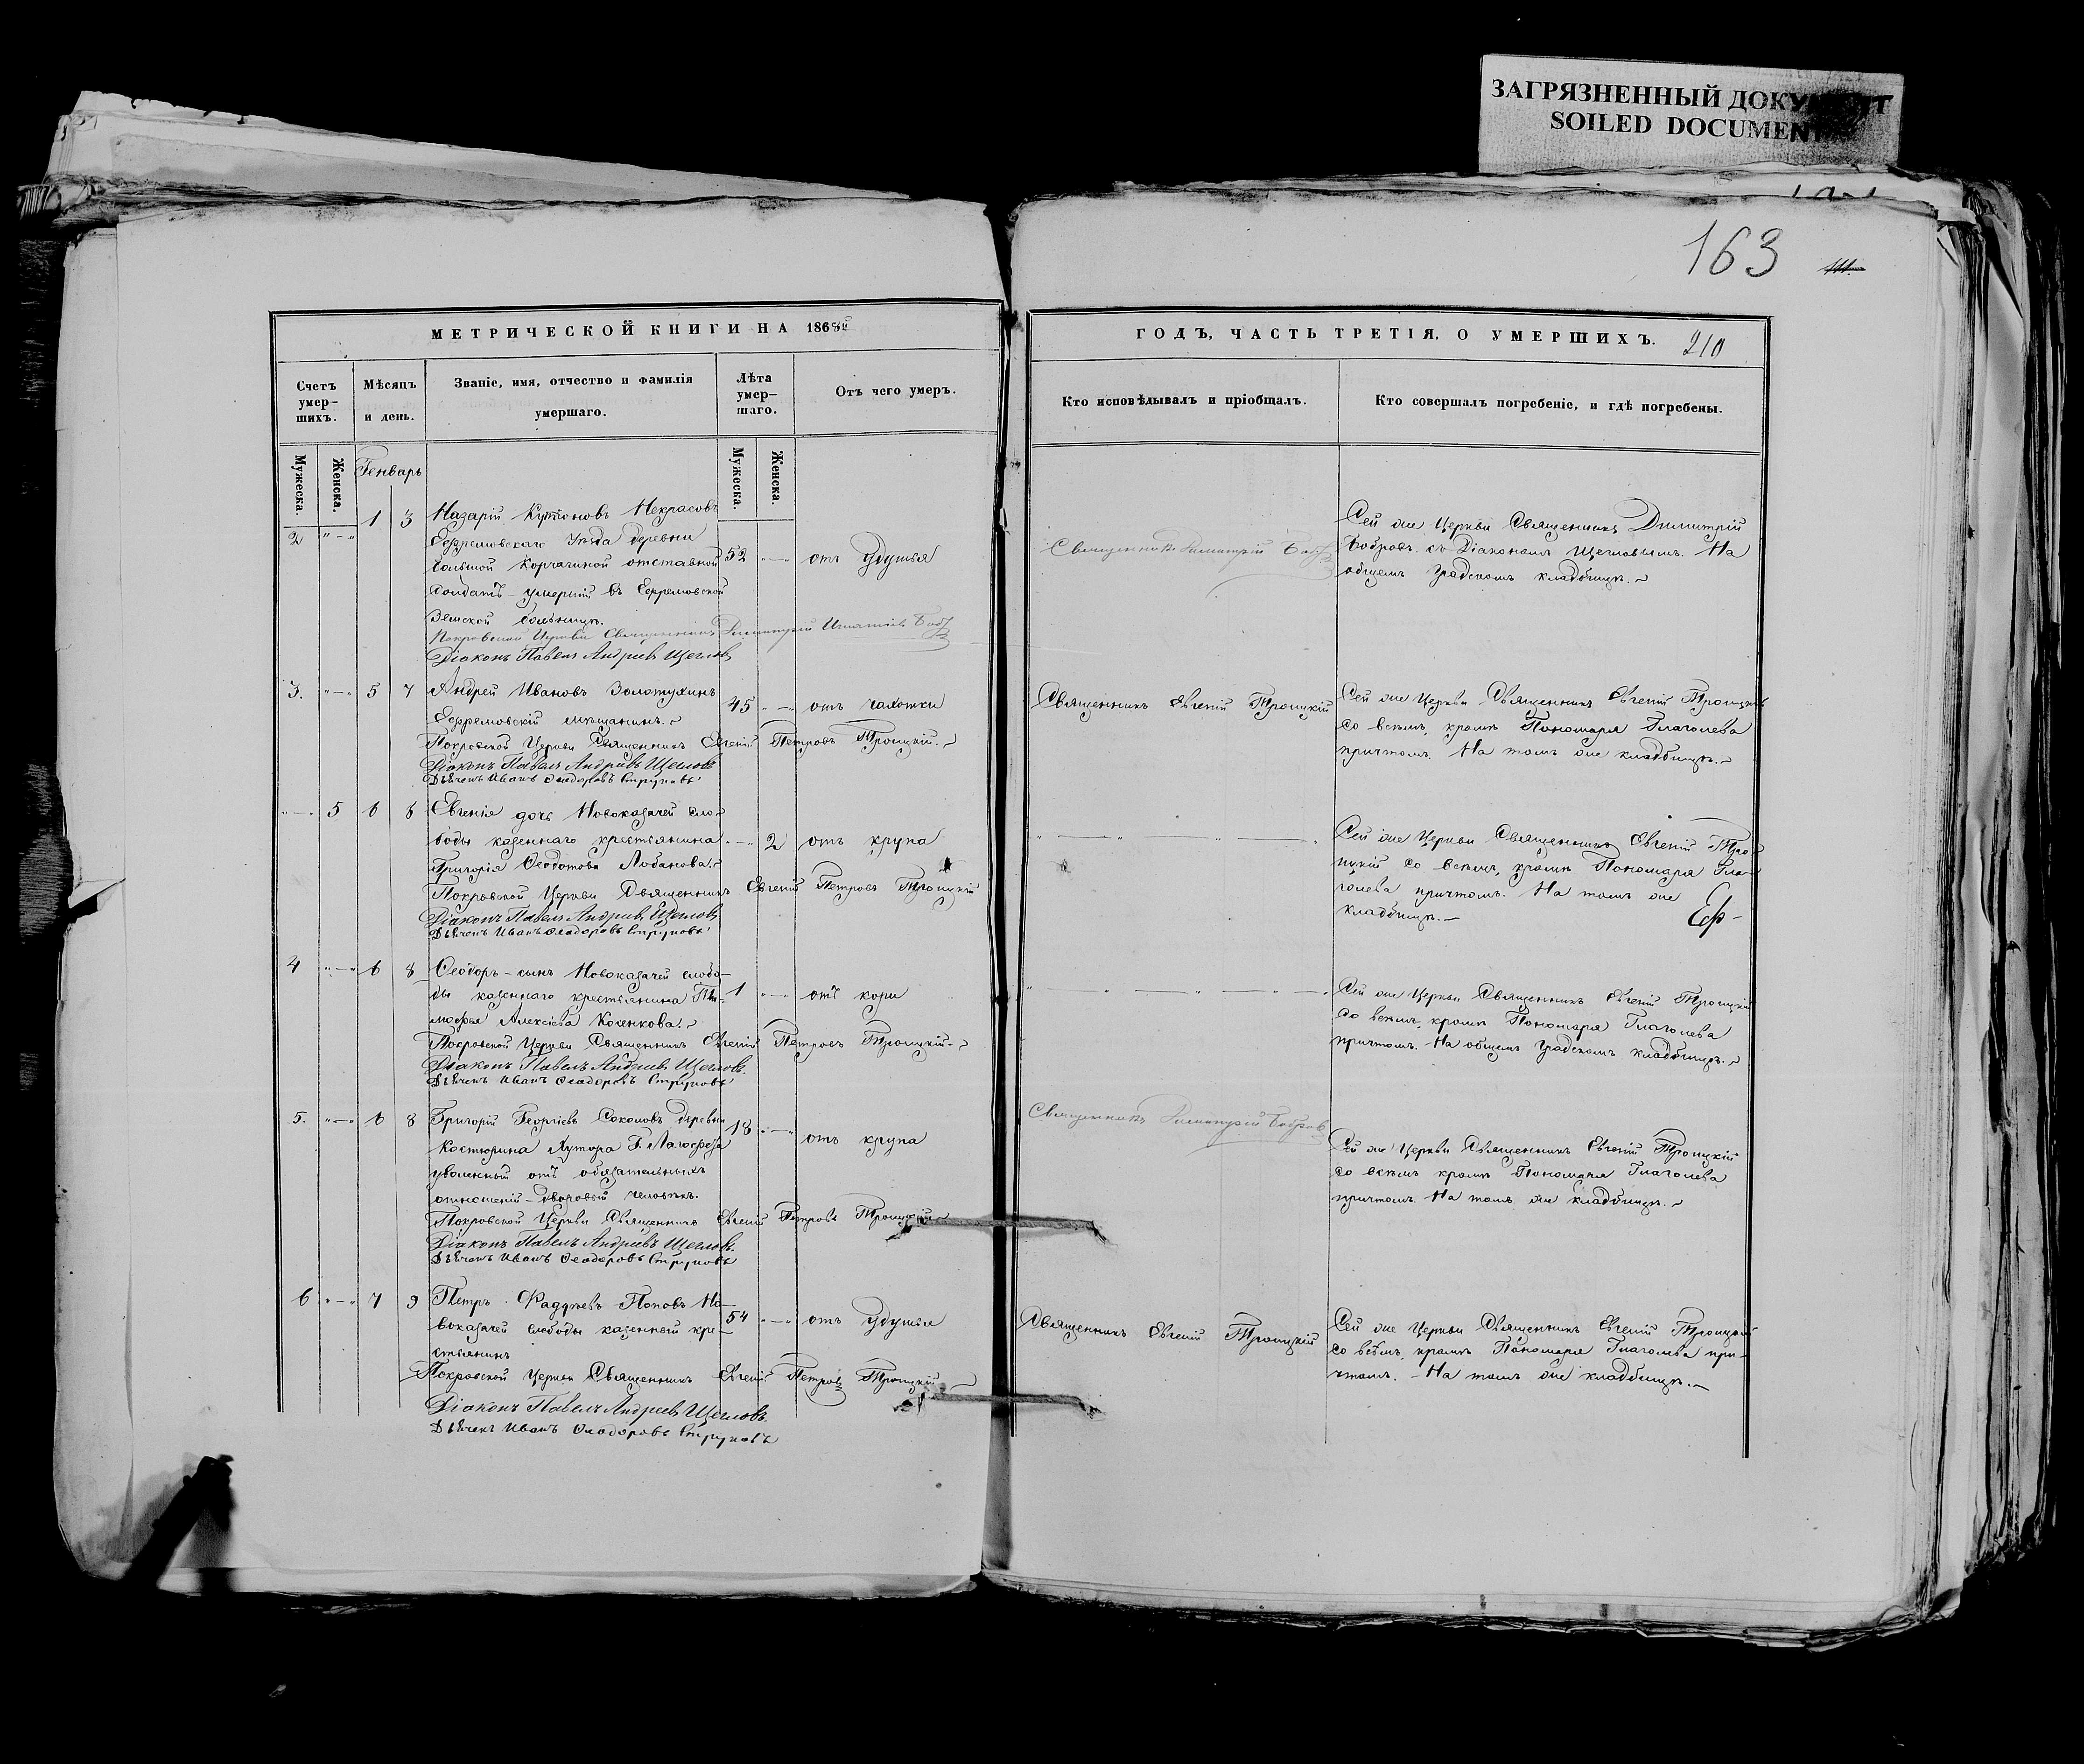 ЗАГРЯЗНЕННЫЙ ДОКУМЕНТ
SOILED DOCUMENT
163
МЕТРИЧЕСКОЙ КНИГИ НА 1868й
Счетъ умер-шихъ.
Мѣсяцъ и день.
Званіе, имя, отчество и фамилія умершаго.
Лѣта умер-шаго.
Отъ чего умеръ.
Мужеска.
Женска.
Генварь
Мужеска.
Женска.
2 "—" 1 3 Назарій Некрасовъ
Ефремовскаго Уѣзда деревни
большой Корчагиной отставной 52 "—" отъ удушья
солдатъ – умершій въ Ефремовской
Земской больницѣ.
Покровской Церкви Священникъ Димитрій Игнатіевъ Бобр
Діаконъ Павелъ Андреевъ Щегловъ
3. "—" 5 7 Андрей Ивановъ Золотухинъ 45 "—" отъ чахотки
Ефремовскій мѣщанинъ.
Покровской Церкви Священникъ Евгеній Петровъ Троицкій.
Діаконъ Павелъ Андреевъ Щегловъ
Дьячекъ Иванъ Ѳеодоровъ Струковъ
"—" 5 6 8 Евгенія дочь Новоказачей сло-
боды казеннаго крестьянина "—" 2 отъ крупа
Григорія Ѳеодотова Лобанова.
Покровской Церкви Священникъ Евгеній Петровъ Троицкій
Діаконъ Павелъ Андреевъ Щегловъ
Дьячекъ Иванъ Ѳеодоровъ Струковъ
4 "—" 6 8 Ѳеодоръ – сынъ Новоказачей слобо-
ды казеннаго крестьянина Ти- 1 "—" отъ кори
мофея Алексіева Коченкова.
Покровской Церкви Священникъ Евгеній Петровъ Троицкій.
Діаконъ Павелъ Андреевъ Щегловъ.
Дьячекъ Иванъ Ѳеодоровъ Струковъ
5. "—" 6 8 Григорій Георгіевъ Соколовъ деревни 18 "—"
Костюрина Хутора Г. отъ крупа
уволенный отъ обязательныхъ
отношеній – дворовый человѣкъ.
Покровской Церкви Священникъ Евгеній Петровъ Троицкій
Діаконъ Павелъ Андреевъ Щегловъ.
Дьячекъ Иванъ Ѳеодоровъ Струковъ
6 "—" 7 9 Петръ Фаддѣевъ Поповъ Но- 54 "—" отъ удушья
воказачей слободы казенный кре-
стьянинъ
Покровской Церкви Священникъ Евгеній Петровъ Троицкій
Діаконъ Павелъ Андреевъ Щегловъ.
Дьячекъ Иванъ Ѳеодоровъ Струковъ
ГОДЪ, ЧАСТЬ ТРЕТІЯ, О УМЕРШИХЪ. 210
Кто исповѣдывалъ и пріобщалъ.
Кто совершалъ погребеніе, и гдѣ погребены.
Священникъ Димитрій Бобр
Сей же Церкви Священникъ Димитрій
Бобровъ съ Діакономъ Щегловымъ. На
общемъ Градскомъ кладбищѣ.
Священникъ Евгеній Троицкій
Сей же Церкви Священникъ Евгеній Троицкій
со всѣмъ, кромѣ Пономаря Глаголева
причтомъ. На томъ же кладбищѣ.
Сей же Церкви Священникъ Евгеній Тро-
ицкій со всѣмъ, кромѣ Пономаря Гла-
голева причтомъ. На томъ же
кладбищѣ.— Еф-
Сей же Церкви Священникъ Евгеній Троицкій
со всѣмъ, кромѣ Пономаря Глаголева
причтомъ. На общемъ Градскомъ кладбищѣ.
Священникъ Димитрій Бобровъ
Сей же Церкви Священникъ Евгеній Троицкій
со всѣмъ кромѣ Пономаря Глаголева
причтомъ. На томъ же кладбищѣ.
Священникъ Евгеній Троицкій
Сей же Церкви Священникъ Евгеній Троицкій
со всѣмъ, кромѣ Пономаря Глаголева при-
чтомъ. – На томъ же кладбищѣ.—